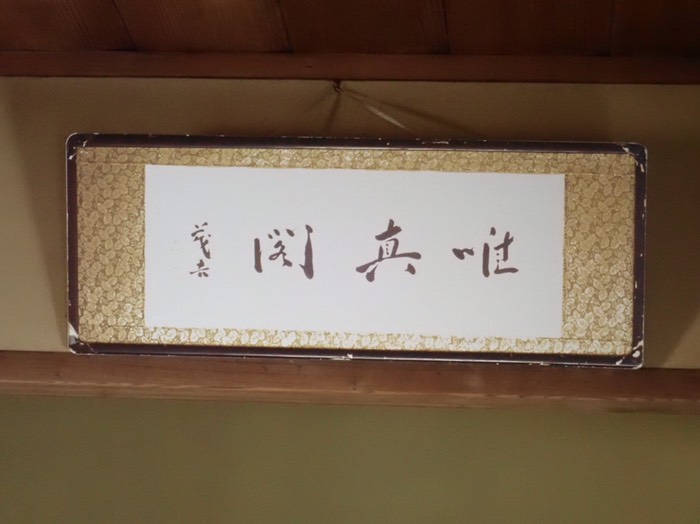 唯真閣
茂吉